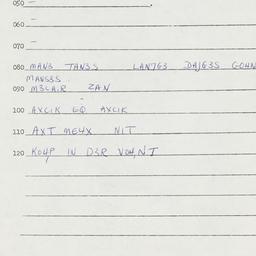 050 —
060 —
070 —
080 MANS TANSS LANTGS DAIGES GOHN
MANSES
090 M3LAIR ZAN
100 AXCIK EQ AXCIK
110 AXT ME4X NIT
120 KO4P IN D3R VO4,NT